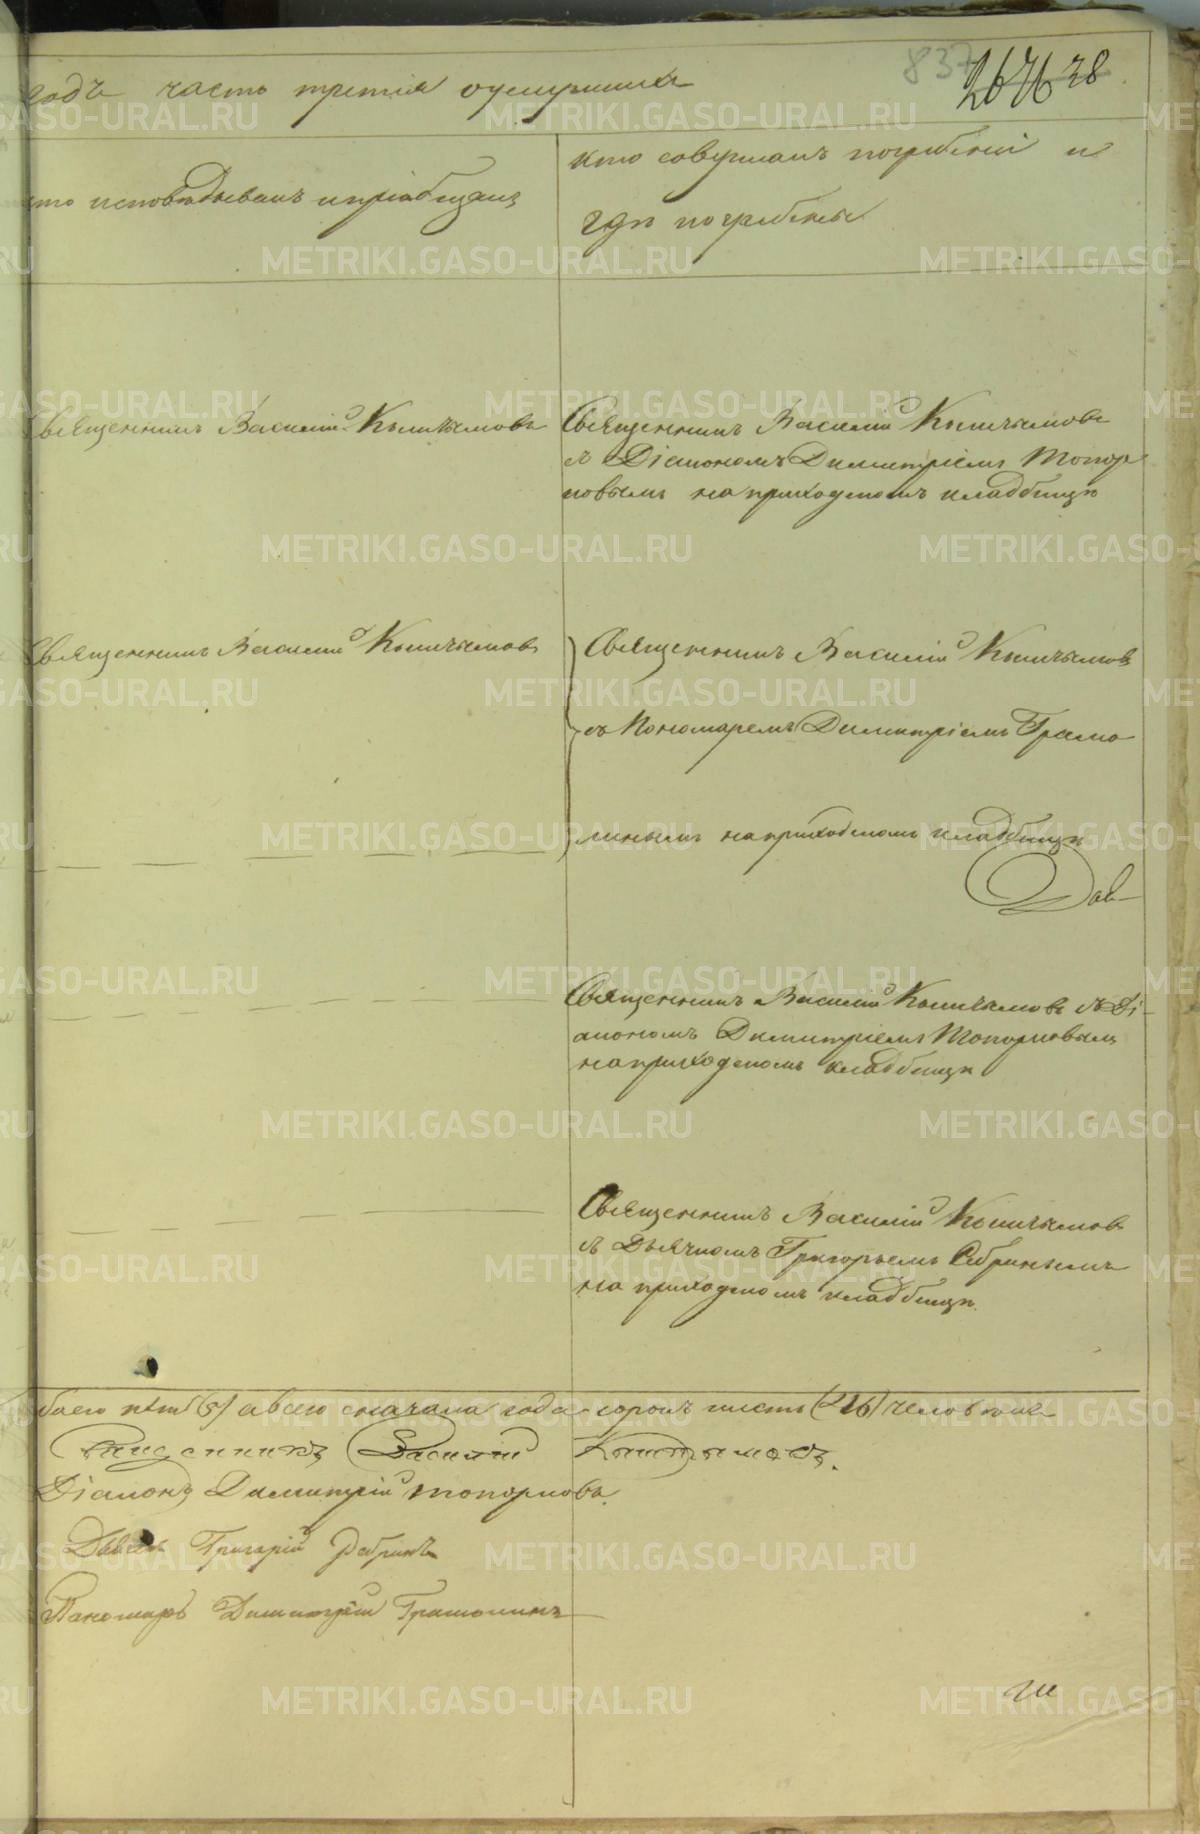 годъ часть третія оумершихъ
837 26 46 28
кто исповѣдывалъ и пріобщалъ
кто совершалъ погребеніе и
гдѣ погребены
Священникъ Василій Кыштымовъ
Священникъ Василій Кыштымовъ
съ Діакономъ Димитріемъ Топор
ковымъ на приходскомъ кладбищѣ
Священникъ Василій Кыштымовъ
Священникъ Василій Кыштымовъ
съ Пономаремъ Димитріемъ Грамо
линымъ на приходскомъ кладбищѣ
Священникъ Василій Кыштымовъ съ Ді
акономъ Димитріемъ Топорковымъ
на приходскомъ кладбищѣ
Священникъ Василій Кыштымовъ
съ Дьячкомъ Григорьемъ Сабринымъ
на приходскомъ кладбищѣ.
боего пять (5) а всего съ начала года сорокъ шесть (46) человѣкъ
Священникъ Василій Кыштымовъ.
Діаконъ Димитрій Топорковъ.
Дьячекъ Григорій Сабринъ
Пономарь Димитрій Грамолинъ
METRIKI.GASO-URAL.RU